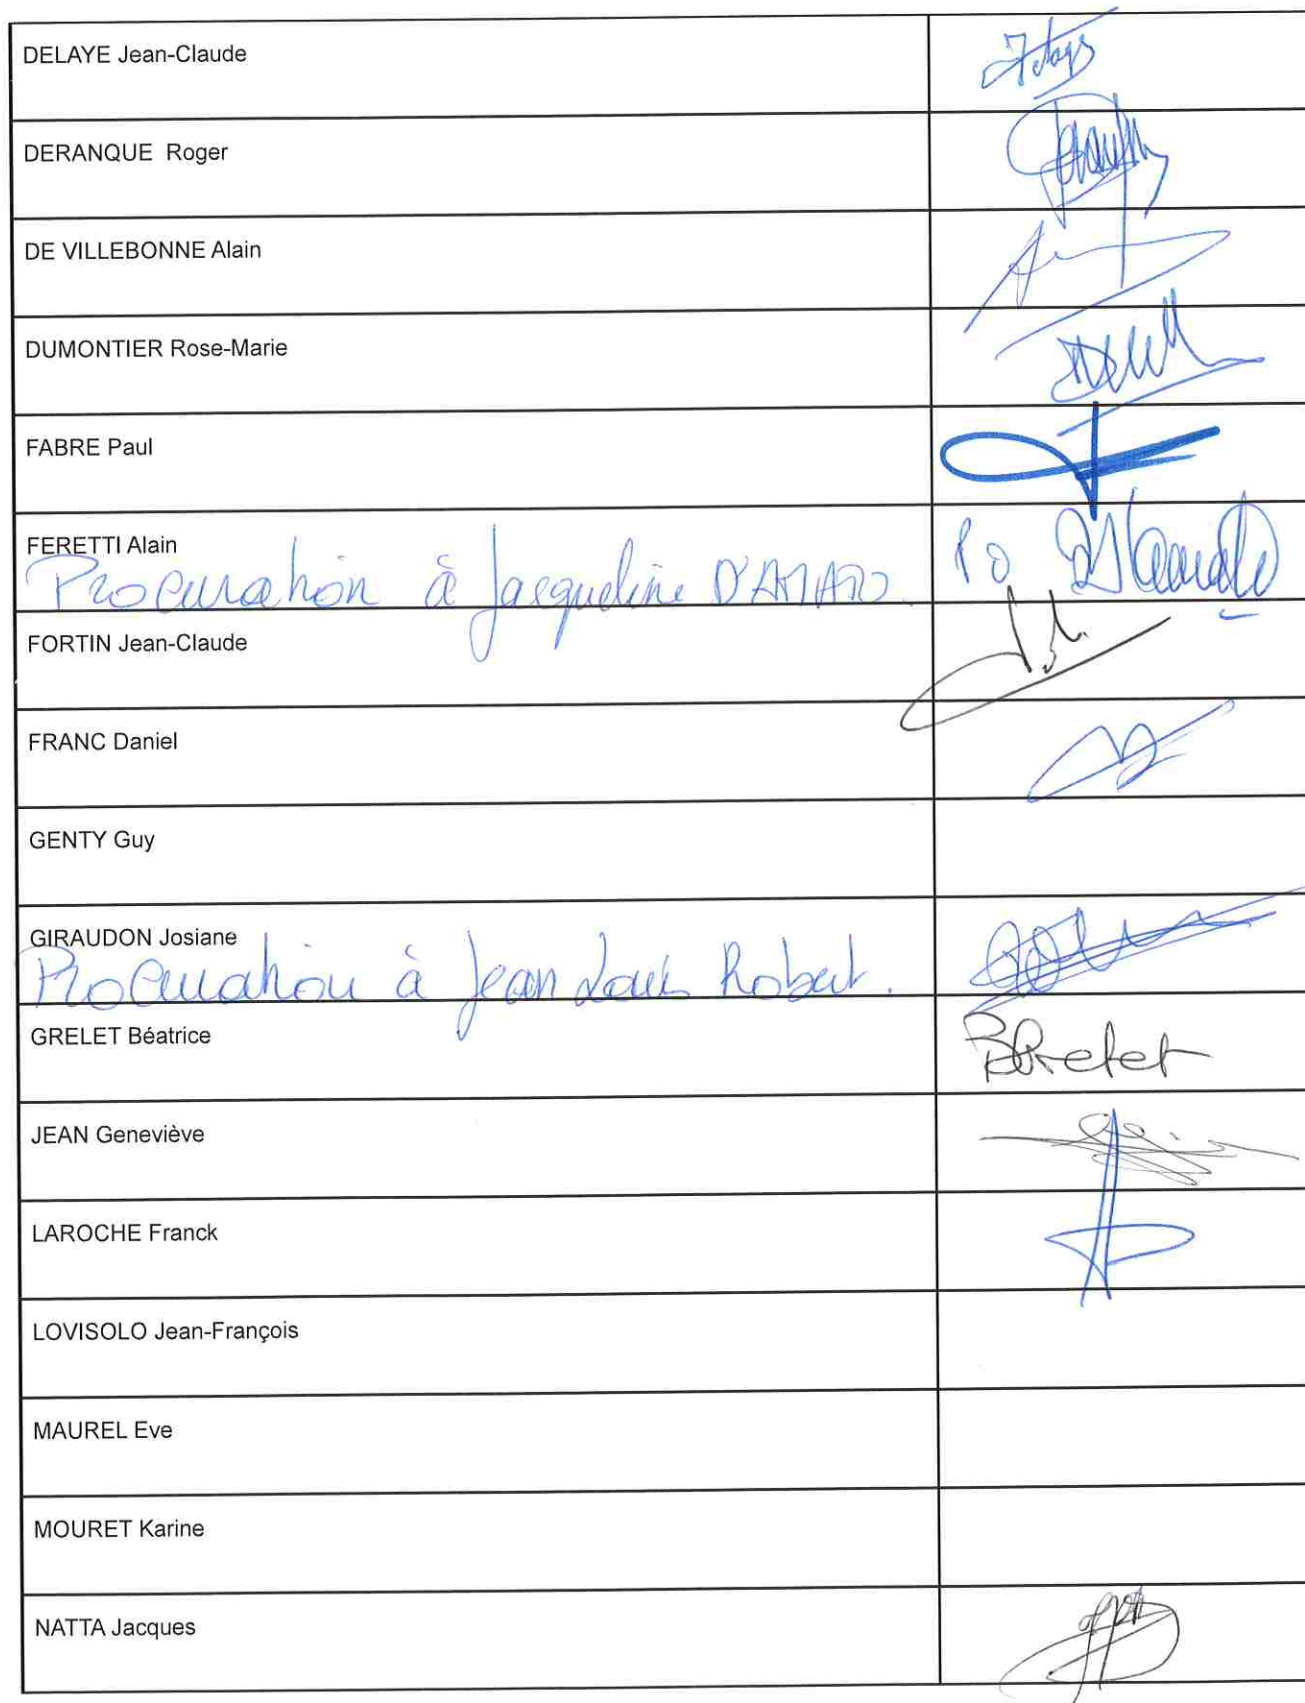 DELAYE Jean-Claude
DERANQUE Roger
DE VILLEBONNE Alain
DUMONTIER Rose-Marie
FABRE Paul
FERETTI Alain
Procuration à Jacqueline D'AMATO. Po
FORTIN Jean-Claude
FRANC Daniel
GENTY Guy
GIRAUDON Josiane
Procuration à Jean Louis Robert.
GRELET Béatrice BGrelet
JEAN Geneviève
LAROCHE Franck
LOVISOLO Jean-François
MAUREL Eve
MOURET Karine
NATTA Jacques